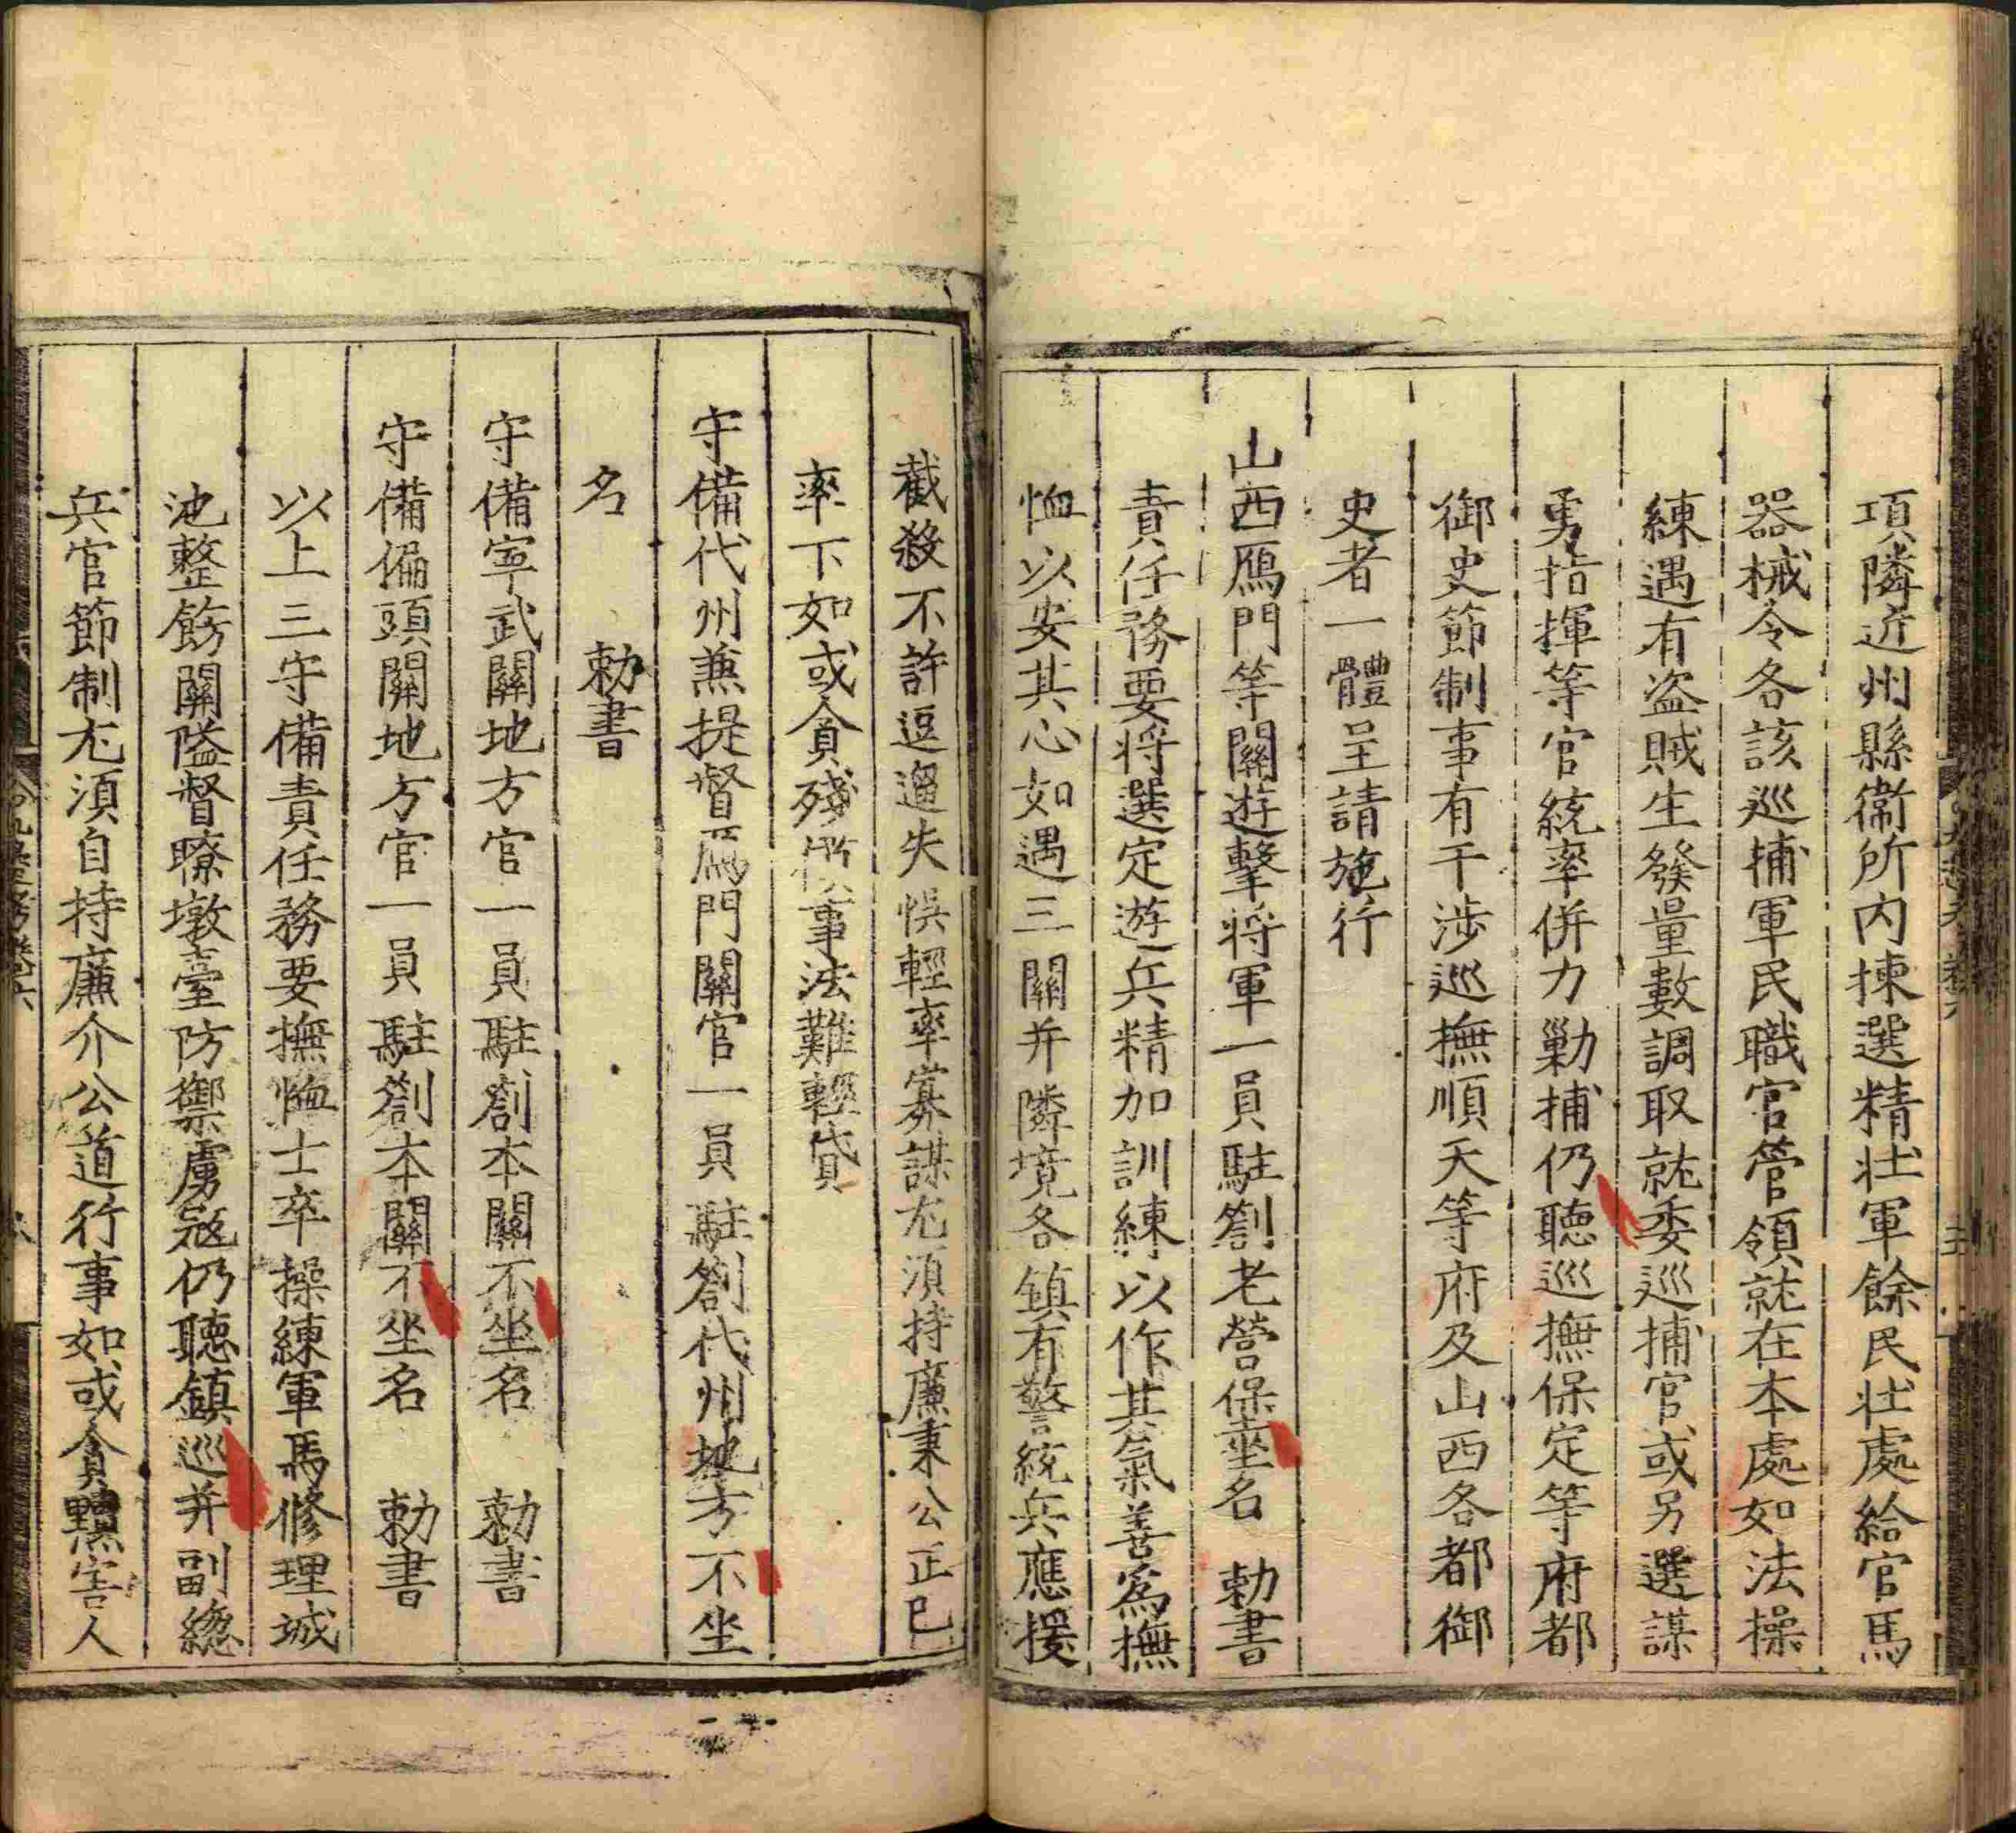 項隣近州縣衞所内揀選精壯軍餘民壯處給官馬
器械令各該巡捕軍民職官管領就在本處如法操
練遇有盗賊生發量數調取就委巡捕官或另選謀
勇指揮等官統率併力勦捕仍聽巡撫保定等府都
御史節制事有干渉巡撫順天等府及山西各都御
史者一體呈請施行
山西鴈門等關遊擊將軍一員駐劄老營堡坐名 勅書
責任務要將選定遊兵精加訓練以作其氣善爲撫
恤以安其心如遇三關并隣境各鎮有警統兵應援
截殺不許逗遛失悞輕率寡謀尤須持廉秉公正已
率下如或貪殘 事法難輕貸
守備代州兼提督鴈門關官一員駐劄代州地方不坐
名 勅書
守備寧武關地方官一員駐劄本關不坐名 勅書
守備偏頭關地方官一員駐劄本關不坐名 勅書
以上三守備責任務要撫恤士卒操練軍馬修理城
池整飭關隘督瞭墩臺防禦虜冦仍聽鎮巡并副總
兵官節制尤須自持廉介公道行事如或貪黷害人